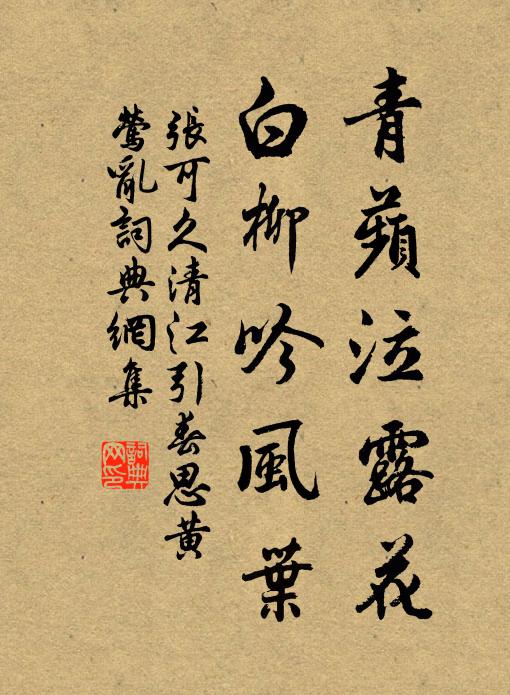 青蘋泣露花
白柳吟風葉
張可久清江引春思黃
鶯亂詞典網集
詞典網印